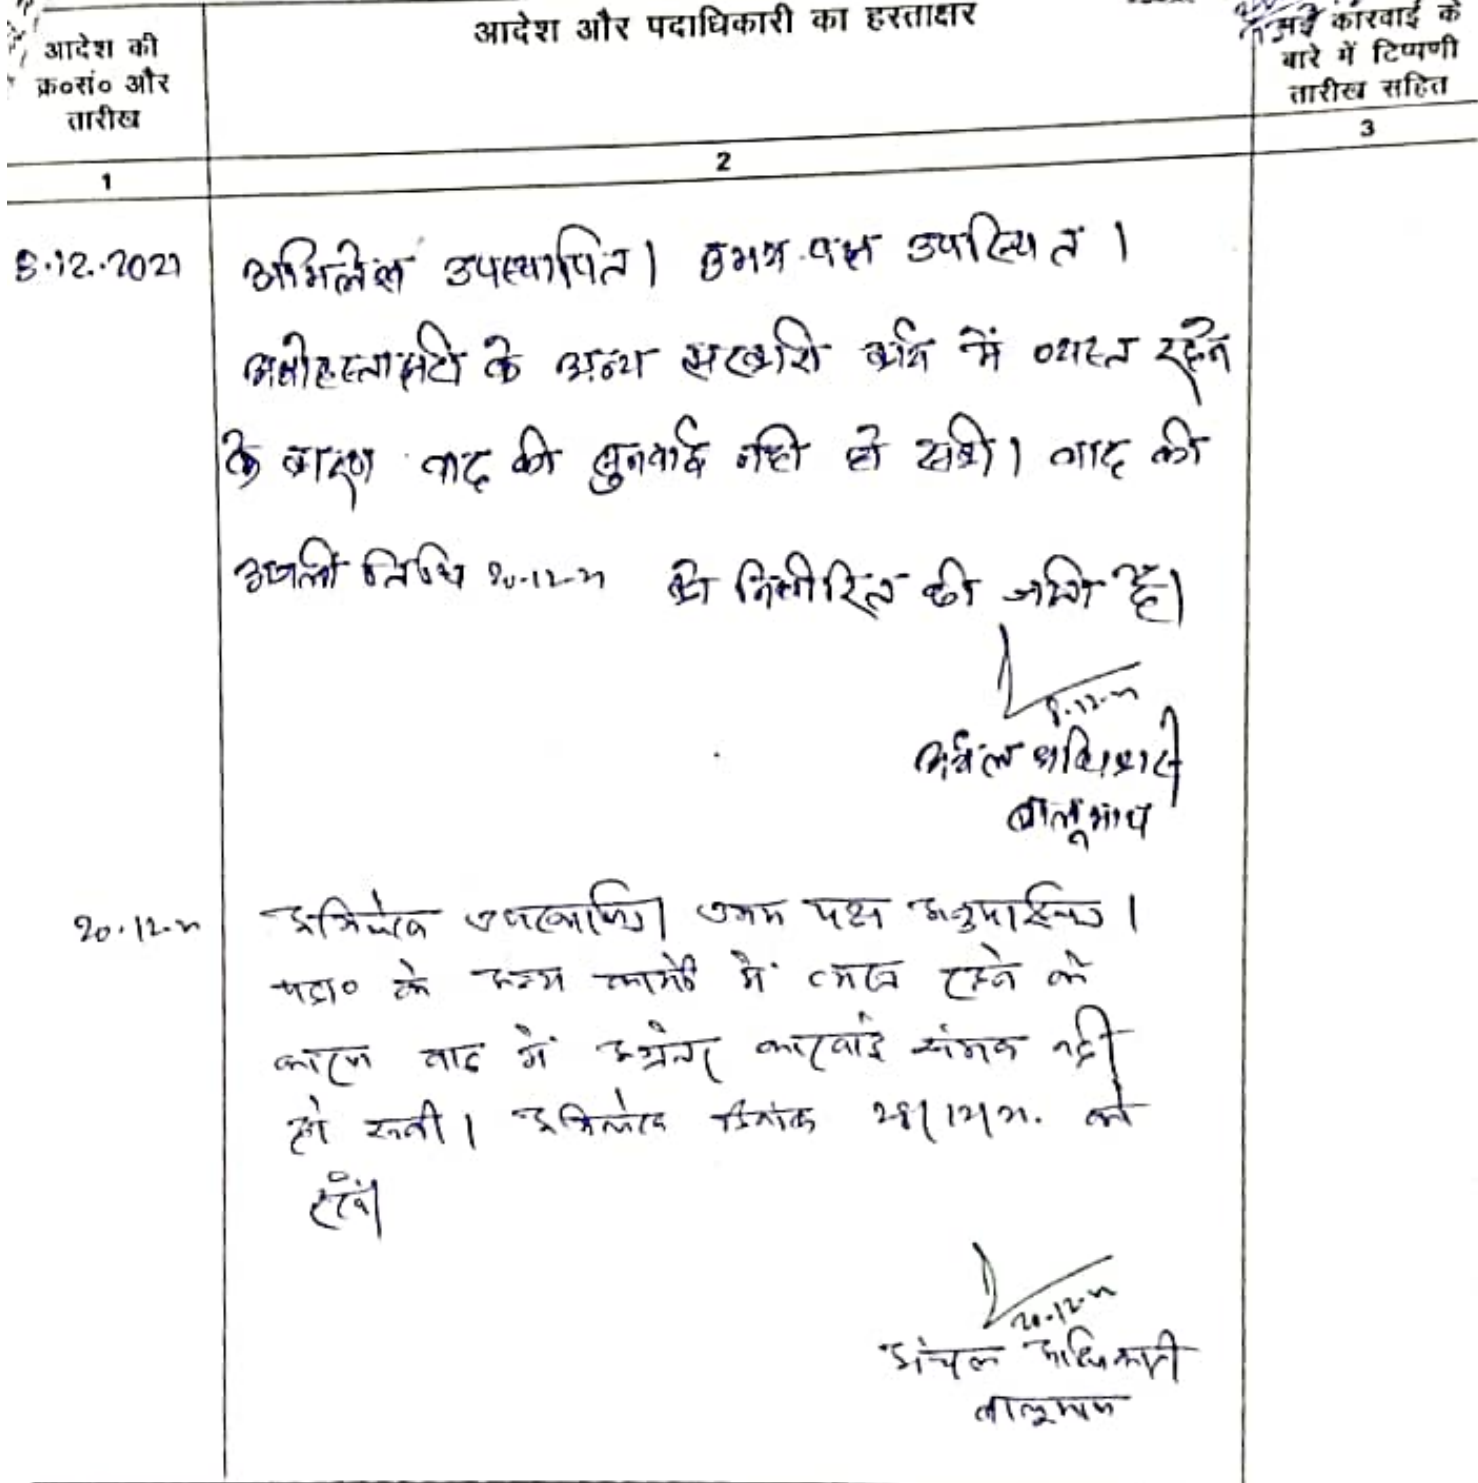 आदेश की
क्र०सं० और
तारीख
आदेश और पदाधिकारी का हस्ताक्षर
गई कारवाई के
बारे में टिप्पणी
तारीख सहित
1
2
3
8.12.2021
अभिलेख उपस्थापित। उभय पक्ष उपस्थित।
अधोहस्ताक्षरी के अन्य सरकारी कार्य में व्यस्त रहने
के कारण वाद की सुनवाई नहीं हो सकी। वाद की
अगली तिथि 20-12-21 को निर्धारित की जाती है।
8.12-21
अंचल अधिकारी
बालूमाथ
20.12.21
अभिलेख उपस्थापित। उभय पक्ष अनुपस्थित।
पदा० के अन्य कार्यों में व्यस्त रहने के
कारण वाद में अग्रेतर कारवाई संभव नहीं
हो सकी। अभिलेख दिनांक 28/12/21. को
रखें।
20.12-21
अंचल अधिकारी
बालूमाथ